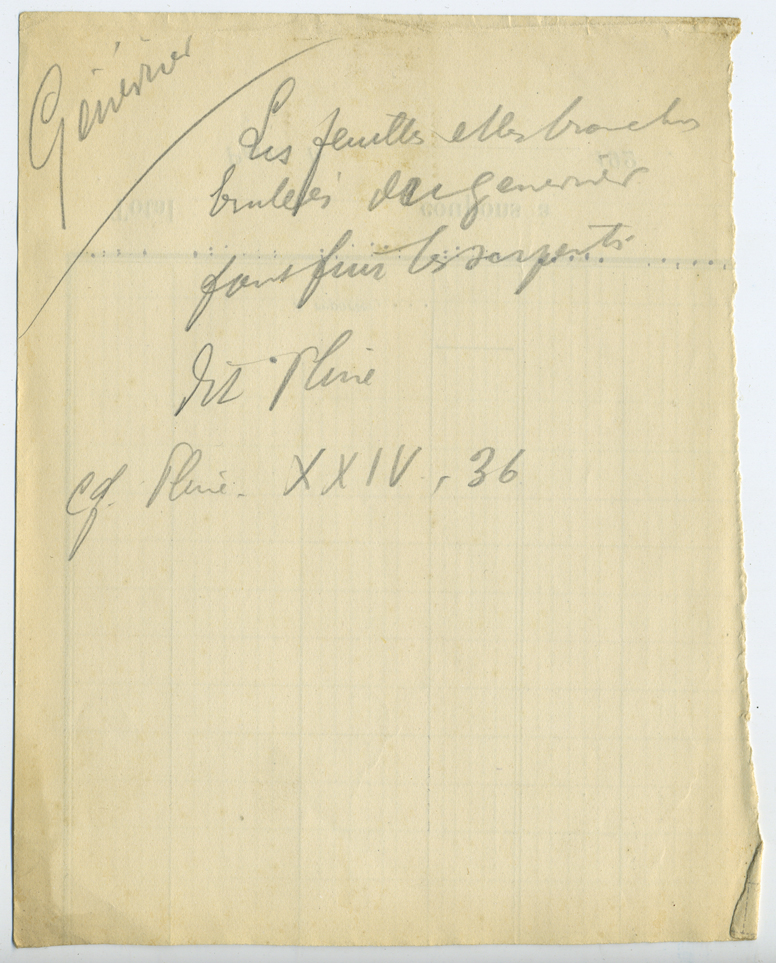 Génévrier
Les feuilles et les branches
brulées du genevrier
font fuir les serpents
dit Pline
cf. Pline. XXIV, 36